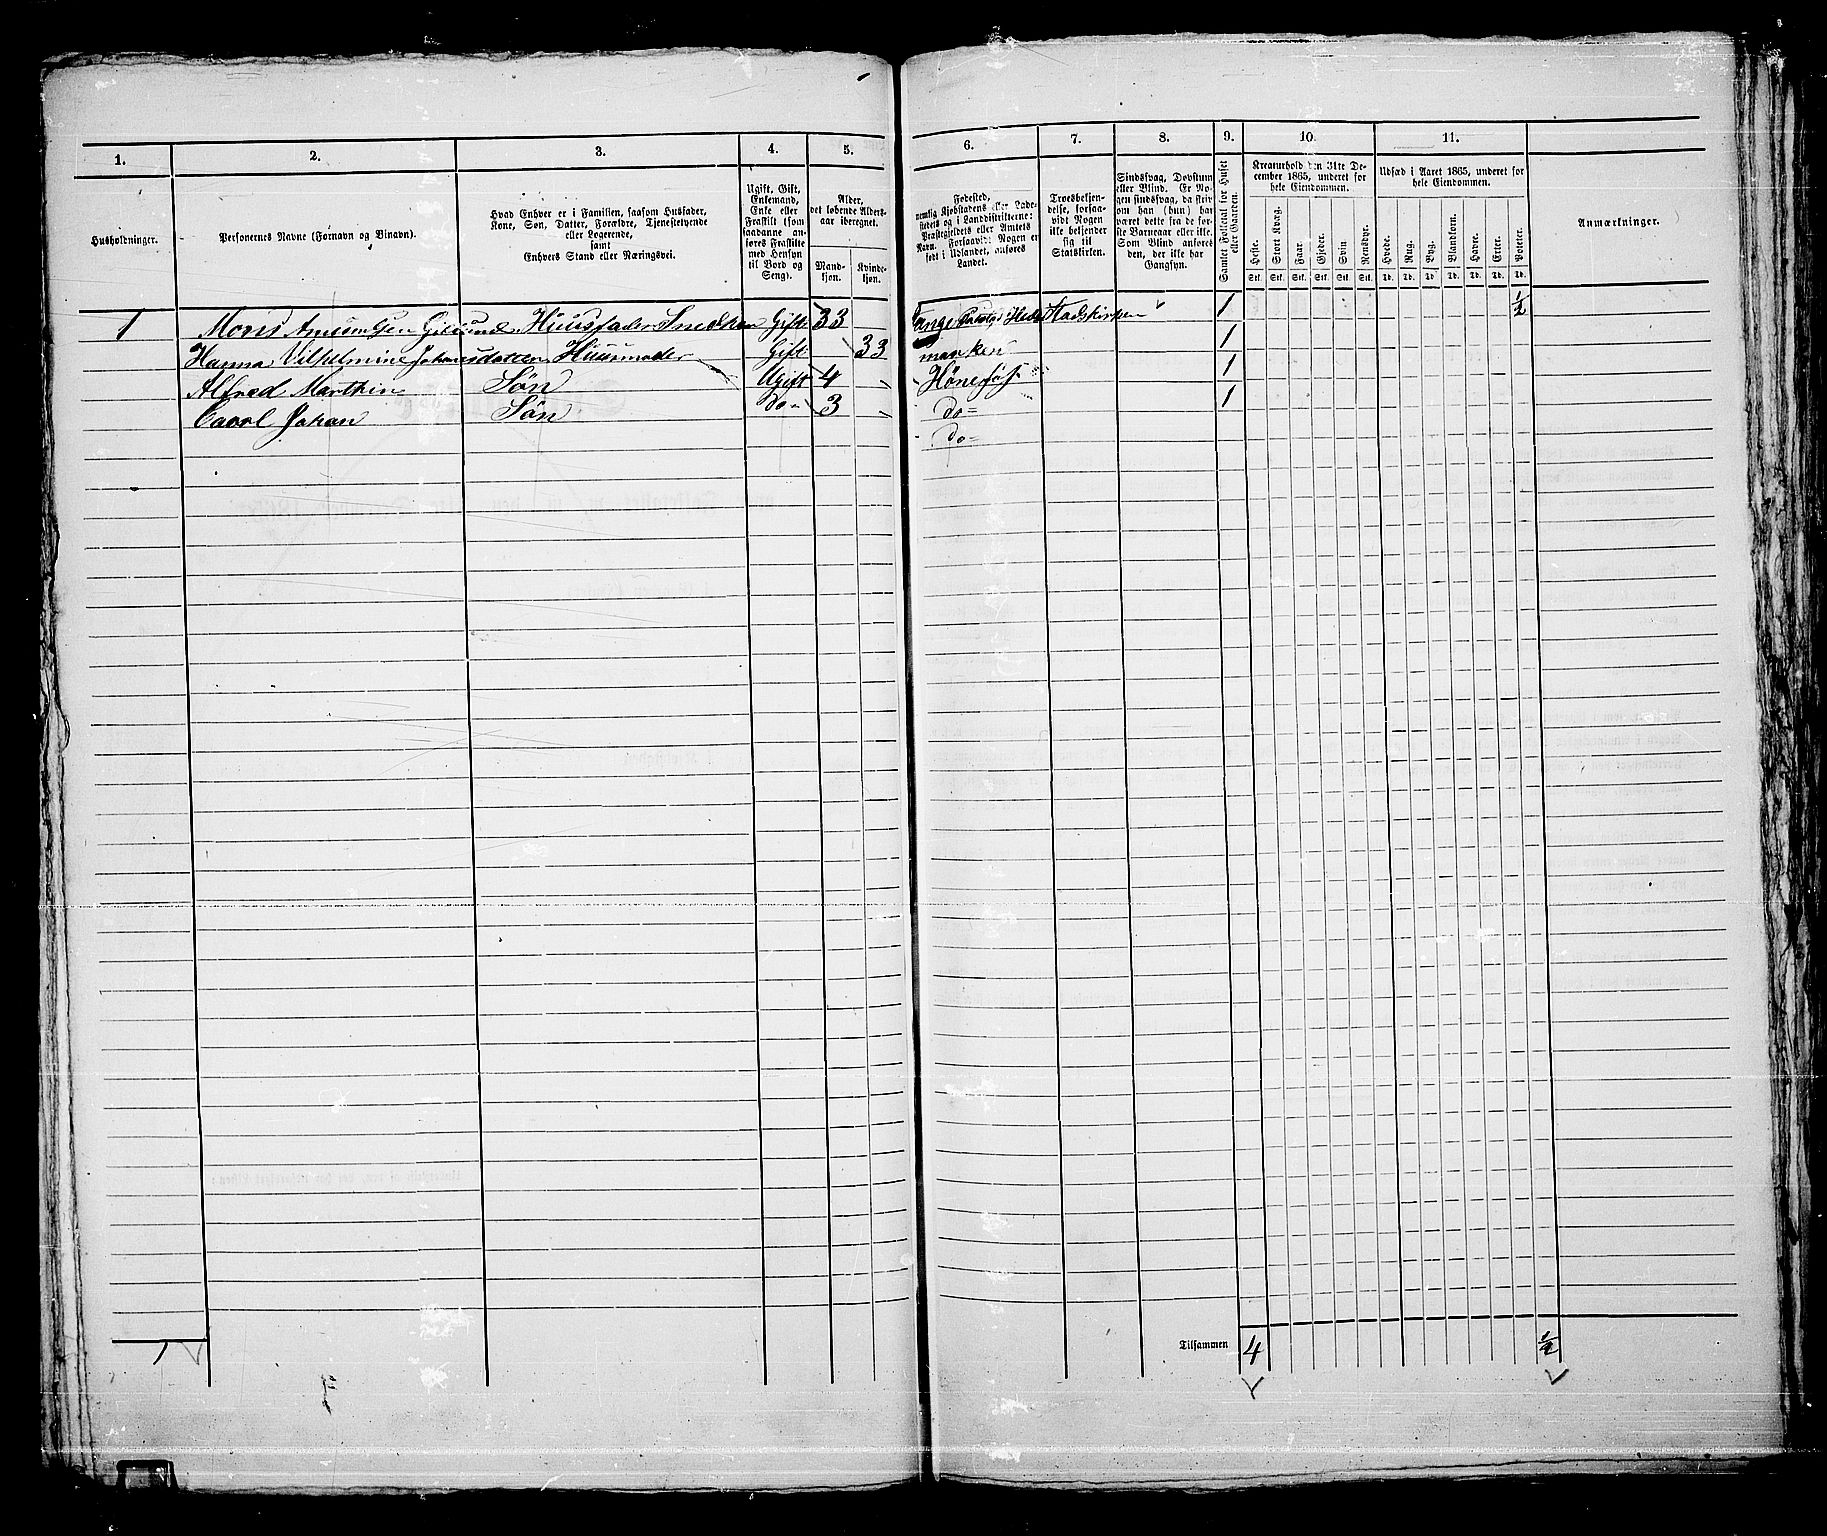 1. 2. 3. 4. 5. 6. 7. 8. 9. 10. 11.
Husholdninger.
Personernes Navne (Fornavn og Binavn).
Hvad Enhver er i Familien, saasom Husfader,
Kone, Søn, Datter, Forældre, Tjenestetyende
eller Logerende,
samt
Enhvers Stand eller Næringsvei.
Ugift, Gift,
Enkemand,
Enke eller
Fraskilt (som
saadanne an-
føres Fraskilte
med Hensyn
til Bord og
Seng).
Alder,
det løbende Alders-
aar iberegnet.
Mand-
kjøn.
Kvinde-
kjøn.
Fødested,
nemlig Kjøbstadens eller Lade-
stedets og i Landdistrikterne:
Præstegjeldets eller Amtets
Navn. Forsaavidt Nogen er
født i Udlandet, anføres
Landet.
Troesbekjen-
delse, forsaa-
vidt Nogen
ikke bekjender
sig til
Statskirken.
Sindssvag, Døvstum
eller Blind. Er No-
gen sindssvag, da skriv
om han (hun) har
været dette fra de før-
ste Barneaar eller ikke.
Som Blind anføres
den, der ikke har
Gangsyn.
Samlet Folketal for Huset
eller Gaarden.
Kreaturhold den 31te De-
cember 1865, underet for
hele Eiendommen.
Heste. Stort Kvæg. Faar. Gjeder. Svin. Rensdyr.
Stk. Stk. Stk. Stk. Stk. Stk.
Udsæd i Aaret 1865, underet for
hele Eiendommen.
Hvede. Rug. Byg. Blandkorn. Havre. Erter. Poteter.
Td. Td. Td. Td. Td. Td. Td.
Anmærkninger.
1 Moris Huusfader Gift 33 Stadskirken 1 ½
Hanna Vilhelmine Johansdatter Huusmoder Gift 33 marken 1
Alfred Marthin Søn Ugift 4 Hønefos 1
Carl Johan Søn do 3 do 1
do
1 Tilsammen 4 ½